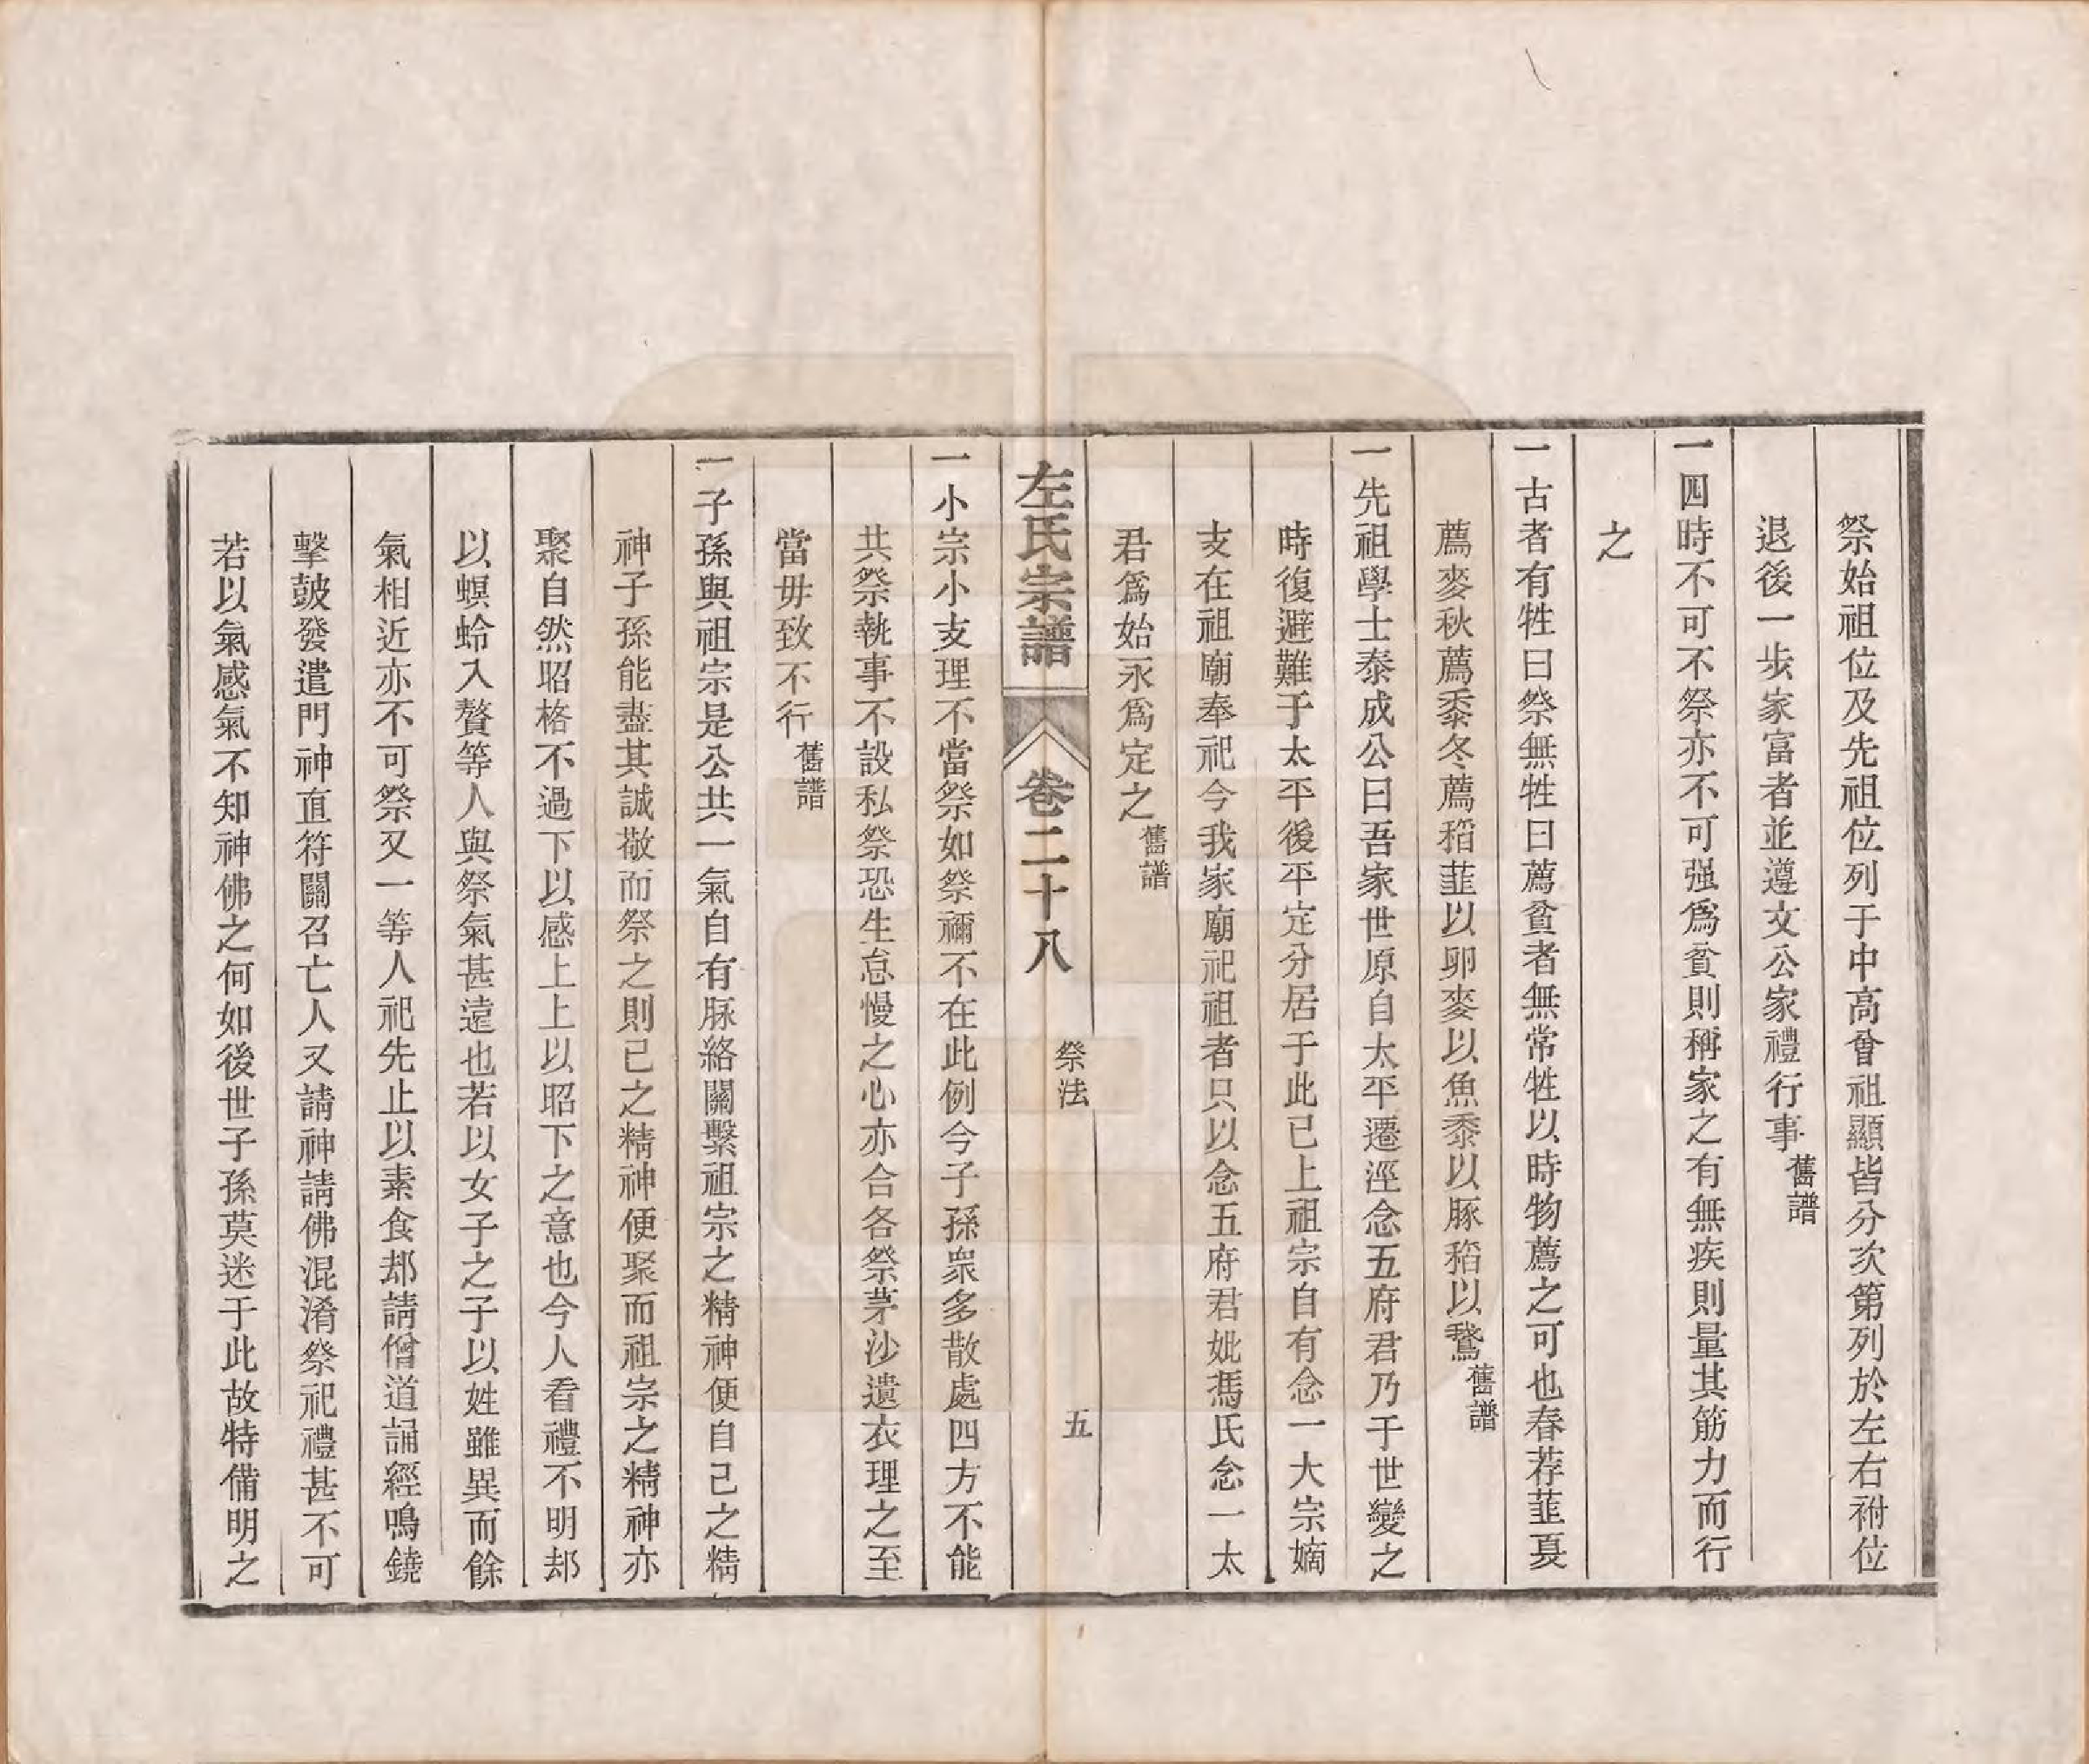 祭始祖位及先祖位列于中高曾祖顯皆分次第列於左右祔位
退後一步家富者並遵文公家禮行事舊譜
一四時不可不祭亦不可强爲貧則稱家之有無疾則量其筋力而行
之
一古者有牲曰祭無牲曰薦貧者無常牲以時物薦之可也春荐韮夏
薦麥秋薦黍冬薦稻韮以卵麥以魚黍以豚稻以鵞舊譜
一先祖學士泰成公曰吾家世原自太平遷涇念五府君乃于世變之
時復避難于太平後平定分居于此已上祖宗自有念一大宗嫡
支在祖廟奉祀今我家廟祀祖者只以念五府君妣馮氏念一太
君爲始永爲定之舊譜
左氏宗譜 卷二十八 祭法 五
一小宗小支理不當祭如祭禰不在此例今子孫衆多散處四方不能
共祭執事不設私祭恐生怠慢之心亦合各祭茅沙遺衣理之至
當毋致不行舊譜
一子孫與祖宗是公共一氣自有脉絡關繫祖宗之精神便自己之精
神子孫能盡其誠敬而祭之則已之精神便聚而祖宗之精神亦
聚自然昭格不過下以感上上以昭下之意也今人看禮不明却
以螟蛉入贅等人與祭氣甚遠也若以女子之子以姓雖異而餘
氣相近亦不可祭又一等人祀先止以素食却請僧道誦經鳴鐃
擊皷發遣門神直符關召亡人又請神請佛混淆祭祀禮甚不可
若以氣感氣不知神佛之何如後世子孫莫迷于此故特備明之